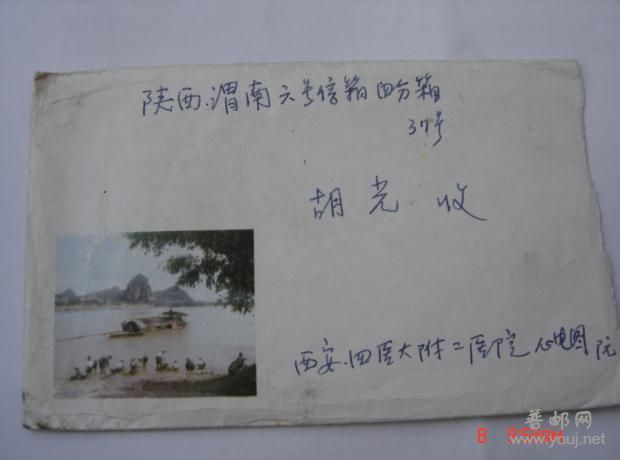 陕西.渭南六号信箱四分箱
37号
胡光 收
西安.四医大附二医院心电图
普邮网
www.youj.net